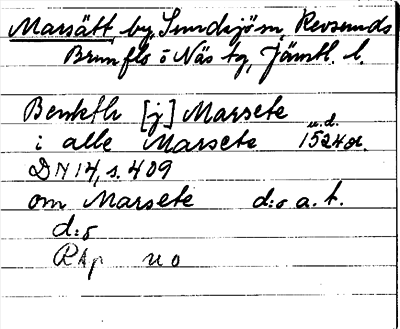 Marsätt, by, Sundsjö sn, Revsunds
Brunflo o Näs tg, Jämtl. l.
Benkth [j] Marsete
i alle Marsete u.d. 1524 or.
DN 14, s. 409
om Marsete d:o a. t.
d:o
RAp no